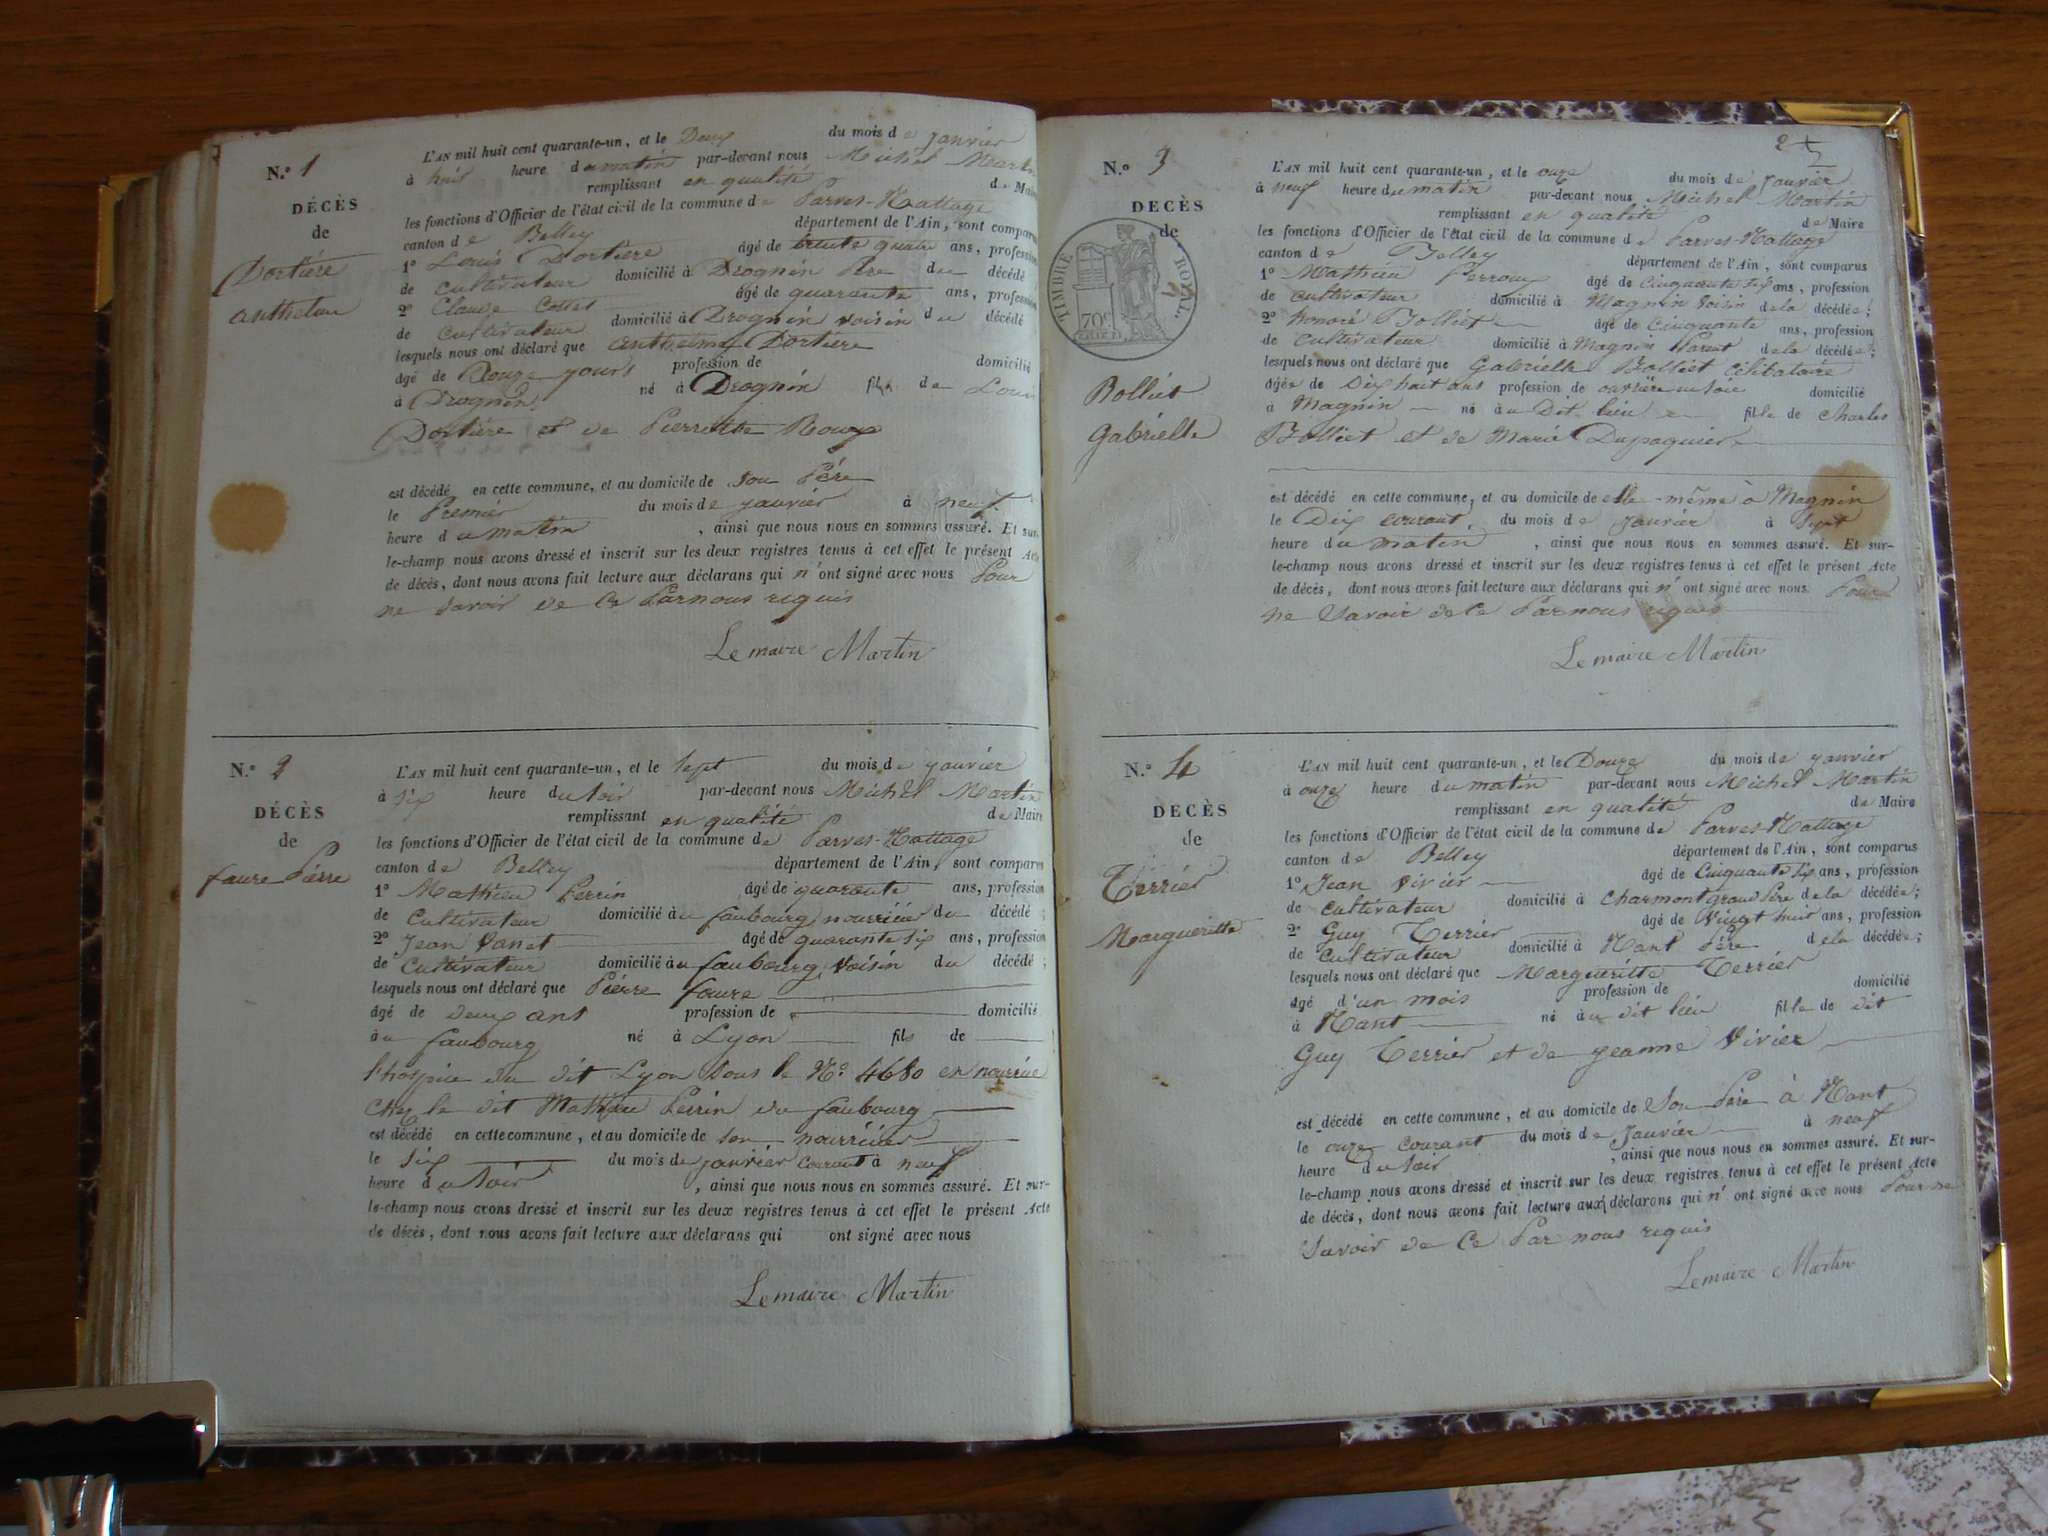 N.° 1
DÉCÈS
de
Dortiere
anthelme
L'AN mil huit cent quarante-un, et le Deux du mois de janvier
à huit heure du matin par-devant nous Michel Martin
remplissant en qualité de Maire
les fonctions d'Officier de l'état civil de la commune de Parves-Nattage
canton de Belley département de l'Ain, sont comparus
1° Louis Dortiere âgé de trente quatre ans, profession
de cultivateur domicilié à Drognin Père du décédé
2° Claude Collet âgé de quarante ans, profession
de cultivateur domicilié à Drognin voisin du décédé
lesquels nous ont déclaré que anthelme Dortiere
âgé de Douze jours profession de domicilié
à Drognin né à Drognin fils de Louis
Dortiere et de Pierrette Roux
est décédé en cette commune, et au domicile de son Père
le Premier du mois de janvier à neuf
heure du matin, ainsi que nous nous en sommes assuré. Et sur-
le-champ nous avons dressé et inscrit sur les deux registres tenus à cet effet le présent Acte
de décès, dont nous avons fait lecture aux déclarans qui n'ont signé avec nous Pour
ne savoir de ce Par nous requis
Le maire Martin
N.° 2
DÉCÈS
de
faure Pierre
L'AN mil huit cent quarante-un, et le sept du mois de janvier
à six heure du soir par-devant nous Michel Martin
remplissant en qualité de Maire
les fonctions d'Officier de l'état civil de la commune de Parves-Nattage
canton de Belley département de l'Ain, sont comparus
1° Mathieu Perrin âgé de quarante ans, profession
de cultivateur domicilié àu faubourg nourricier du décédé;
2° Jean Vanet âgé de quarante six ans, profession
de cultivateur domicilié àu faubourg voisin du décédé;
lesquels nous ont déclaré que Pierre faure
âgé de deux ans profession de domicilié
àu faubourg né à Lyon fils de
l'hospice du dit Lyon sous le N° 4680 en nourrice
chez le dit Mathieu Perrin du faubourg
est décédé en cette commune, et au domicile de son nourricier
le six du mois de janvier courant à neuf
heure du soir, ainsi que nous nous en sommes assuré. Et sur-
le-champ nous avons dressé et inscrit sur les deux registres tenus à cet effet le présent Acte
de décès, dont nous avons fait lecture aux déclarans qui ont signé avec nous
Le maire Martin
2
N.° 3
DECÈS
de
TIMBRE ROYAL
70c
Bolliet
Gabrielle
L'AN mil huit cent quarante-un, et le onze du mois de janvier
à neuf heure du matin par-devant nous Michel Martin
remplissant en qualité de Maire
les fonctions d'Officier de l'état civil de la commune de Parves-Nattage
canton de Belley département de l'Ain, sont comparus
1° Mathieu Perroux âgé de cinquante six ans, profession
de cultivateur domicilié à Magnin voisin de la décédée;
2° honoré Bolliet âgé de cinquante ans, profession
de cultivateur domicilié à Magnin Parent de la décédée;
lesquels nous ont déclaré que Gabrielle Bolliet célibataire
âgée de Dix huit ans profession de ouvrière en soie domicilié
à Magnin né àu Dit lieu fille de Charles
Bolliet et de Marie Dupaquier
est décédé en cette commune, et au domicile de elle-même à Magnin
le Dix courant, du mois de janvier à sept
heure du matin, ainsi que nous nous en sommes assuré. Et sur-
le-champ nous avons dressé et inscrit sur les deux registres tenus à cet effet le présent Acte
de décès, dont nous avons fait lecture aux déclarans qui n'ont signé avec nous Pour
ne savoir de ce Par nous requis
Le maire Martin
N.° 4
DECÈS
de
Terrier
Margueritte
L'AN mil huit cent quarante-un, et le Douze du mois de janvier
à onze heure du matin par-devant nous Michel Martin
remplissant en qualité de Maire
les fonctions d'Officier de l'état civil de la commune de Parves-Nattage
canton de Belley département de l'Ain, sont comparus
1° Jean Vivier âgé de cinquante six ans, profession
de cultivateur domicilié à Charmont grand Père de la décédée;
2° Guy Terrier âgé de Vingt huit ans, profession
de cultivateur domicilié à Nant Père de la décédée;
lesquels nous ont déclaré que Margueritte Terrier
âgé d'un mois profession de domicilié
à Nant né àu dit lieu fille de dit
Guy Terrier et de jeanne Vivier
est décédé en cette commune, et au domicile de son Père à Nant
le onze courant du mois de janvier à neuf
heure du soir, ainsi que nous nous en sommes assuré. Et sur-
le-champ nous avons dressé et inscrit sur les deux registres tenus à cet effet le présent Acte
de décès, dont nous avons fait lecture aux déclarans qui n'ont signé avec nous Pour ne
savoir de ce Par nous requis
Le maire Martin